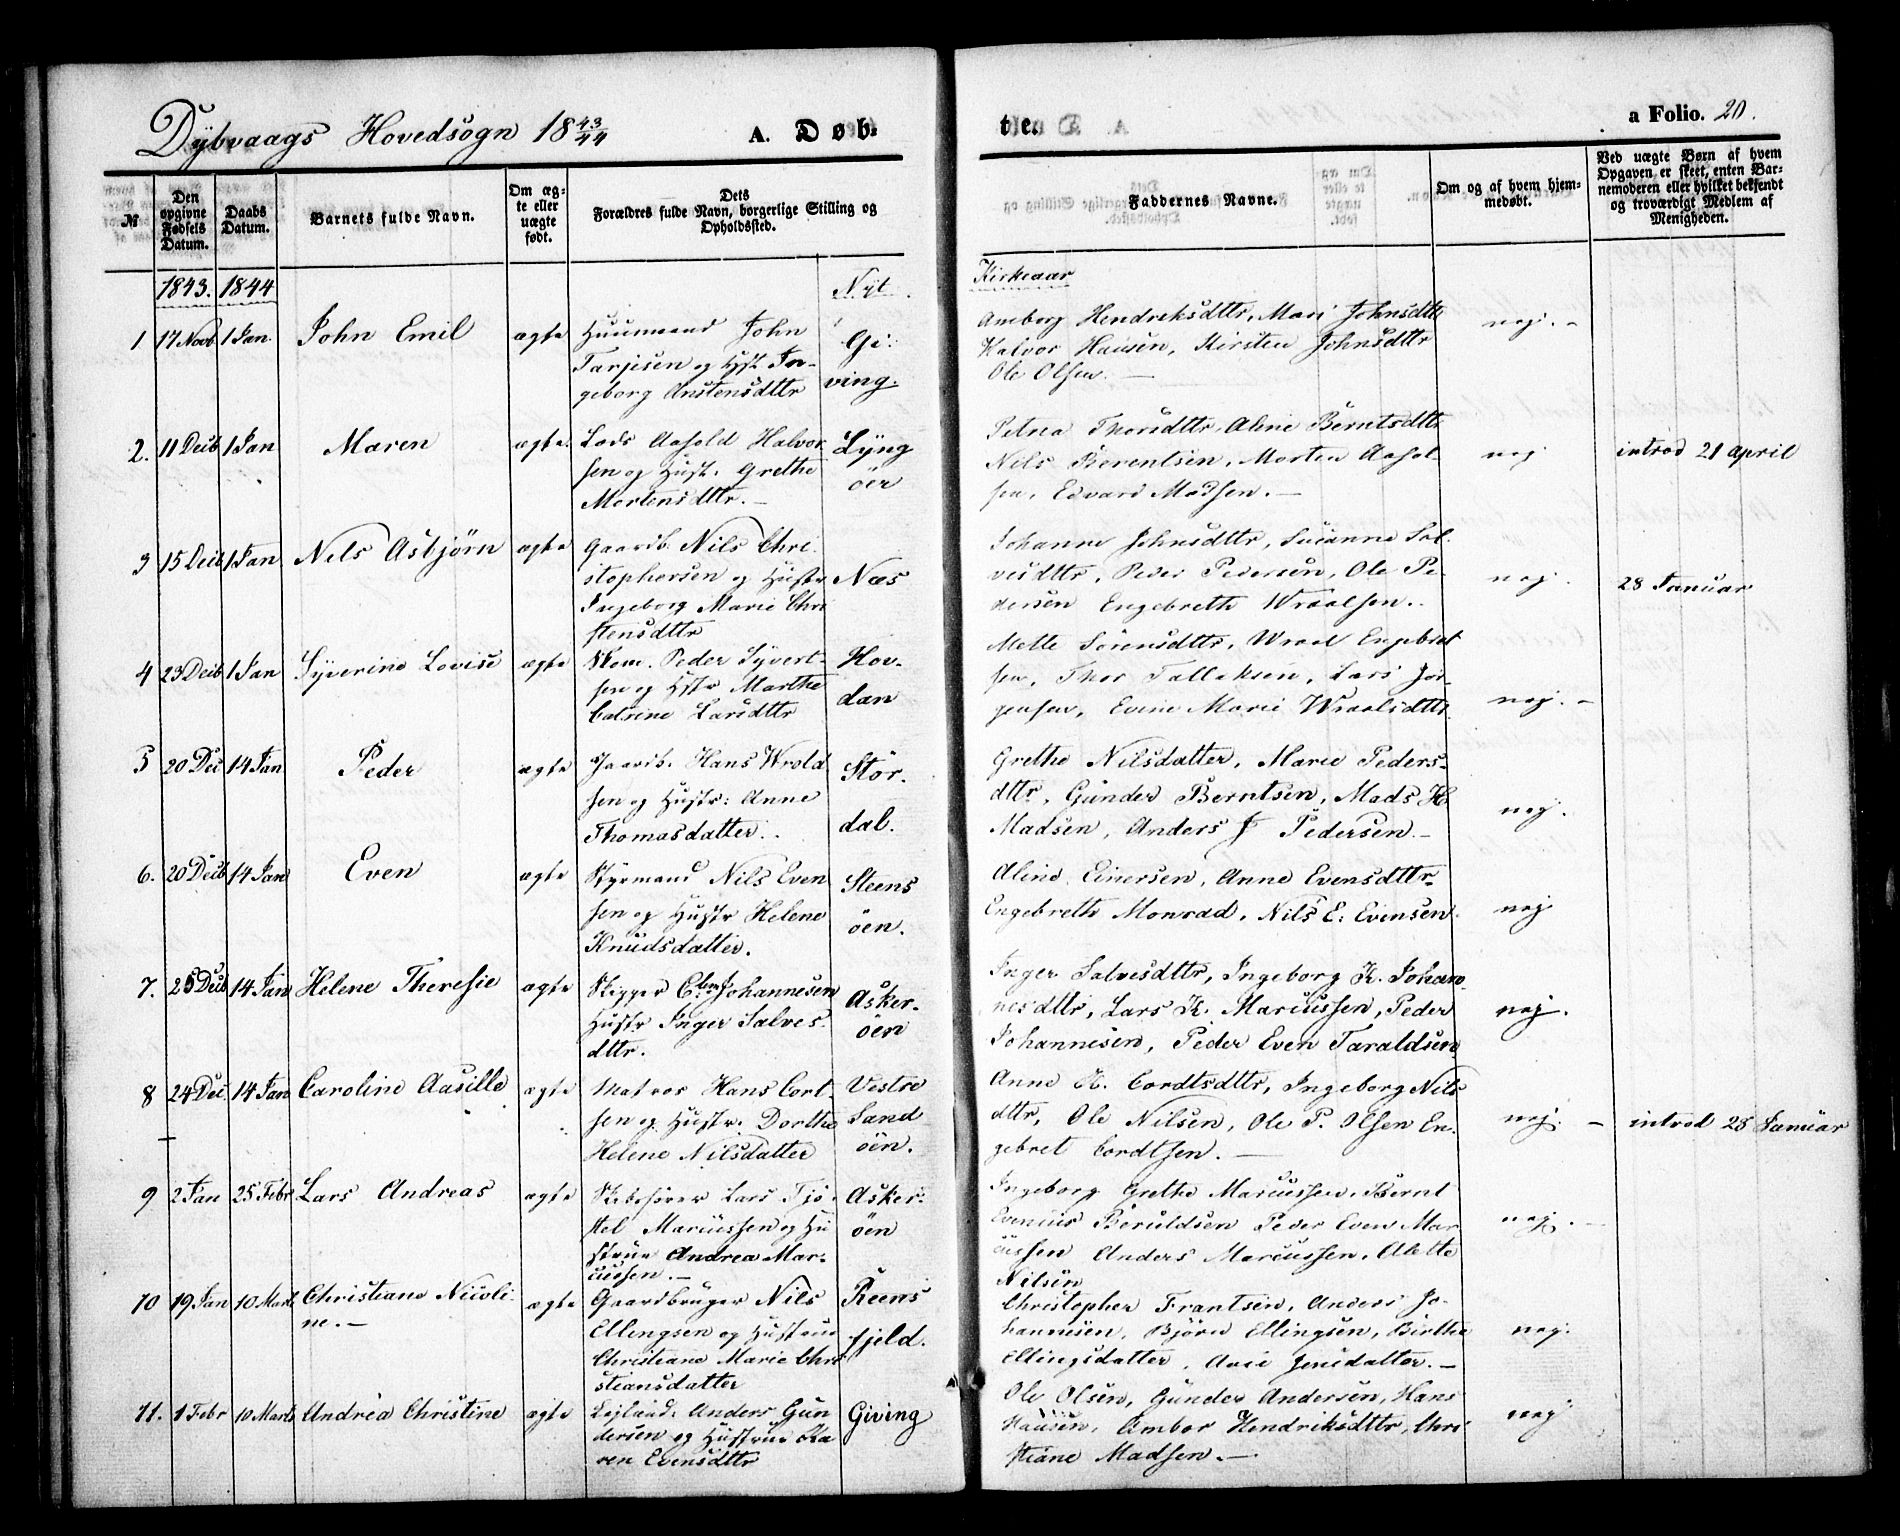 Dybvaags Hovedsogn 18 43/44 A. Døb-
te.
a Folio. 20.
№
Den opgivne Fødsels Datum.
Daabs Datum.
Barnets fulde Navn.
Om ægte eller uægte født.
Dets Forældres fulde Navn, borgerlige Stilling og Opholdssted.
Faddernes Navne.
Om og af hvem hjemmedøbt.
Ved uægte Børn af hvem Opgaven er skeet, enten Barnemoderen eller hvilket bekjendt og troværdigt Medlem af Menigheden.
1843. 1844 Nyt Kirkeaar
1 17 Novb 1 Jan. John Emil ægte Huusmand John
Tarjesen og Hst. In-
geborg Anstensdttr
Gi-
ving.
Amborg Hendriksdttr, Mari Johnsdttr
Halvor Hansen, Kirsten Johnsdttr
Ole Olsen. —
nej. -
2. 11 Decb 1 Jan Maren ægte. Lods Aasold Halvor
sen og Hust. Grethe
Mortensdttr. —
Lyng
öer
Petrea Thorsdttr, Aline Berntsdttr
Nils Berentsen, Morten Aasol-
sen, Edvard Madsen. —
nej
introd 21 april
3 15 Decb 1 Jan Nels Asbjörn ægte Gaardb. Nils Chri
stophersen og Hustr
Ingeborg Marie Chri
stensdttr
Næs
Johanne Johnsdttr, Susanne Sal
vesdttr, Peder Pedersen, Ole Pe-
dersen Engebreth Wraalsen.
nej.
28 Januar
4 23 Decb 1 Jan Syverine Lovise ægte Skom. Peder Syvert-
sen og Hstr Marthe
Catrine Larsdttr
Hov-
dan
Mette Sörensdttr, Wraal Engebret
sen, Thor Tallaksen, Lars Jör-
gensen, Evine Marie Wraalsdttr.
nej. -
5 20 Dec 14 Jan Peder ægte Gaardb. Hans Wrold
sen og Hustr: Anne
Thomasdatter.
Stör-
dal.
Grethe Nilsdatter, Marie Peders-
dttr, Gunder Berntsen, Mads H.
Madsen, Anders J Pedersen. —
nej.
6. 20 Decb 14 Jan Even ægte Styrmand Nils Even
sen og Hustr Helene
Knudsdatter.
Steens
öen.
Aline Einersen, Anne Evensdttr
Engebreth Monrad, Nils E. Evensen.
nej
7. 25 Decb 14 Jan Helene Theresie ægte Skipper Johannesen
Hustr Inger Salves
dttr.
Asker-
öen
Inger Salvesdttr, Ingeborg K. Johan
nesdttr, Lars K. Marcussen, Peder
Johannesen, Peder Even Taraldsen
nej.
8 24 Dec. 14 Jan Caroline Aasille ægte Matros Hans Cort-
sen og Hustr. Dorthe
Helene Nilsdatter
Vestre
Sand
öen.
Anne K. Cordtsdttr, Ingeborg Nils
dttr, Ole Nilsen, Ole P. Olsen En-
gebret Cordtsen. —
nej. -
introd 28 Januar
9 2 Jan 25 Febr Lars Andreas ægte Skibsförer Lars Tjö-
stel Marcussen og Hu
strue Andrea Mar-
cussen. —
Asker-
öen
Ingeborg Grethe Marcussen, Bernt
Evenius Beruldsen Peder Even Mar
cussen Anders Marcussen, Alette
Nilsen
nej. -
10 19 Jan 10 Marts Christiane Nicoli-
ne. —
ægte Gaardbruger Nils
Ellingsen og Hustrue
Christiane Marie Chri
stiansdatter
Reens
fjeld.
Christopher Frantsen, Anders Jo-
hannesen, Björn Ellingsen, Birthe
Ellingsdatter, Jensdatter. —
nej.
11. 1 Febr 10 Marts Andrea Christine ægte Anders Gun
dersen og Hustrue Ka
ren Evensdttr
Giving
Ole Olsen, Gunder Andersen, Hans
Hansen, Ambor Hendriksdttr, Chri
stiane Madsen. —
nej